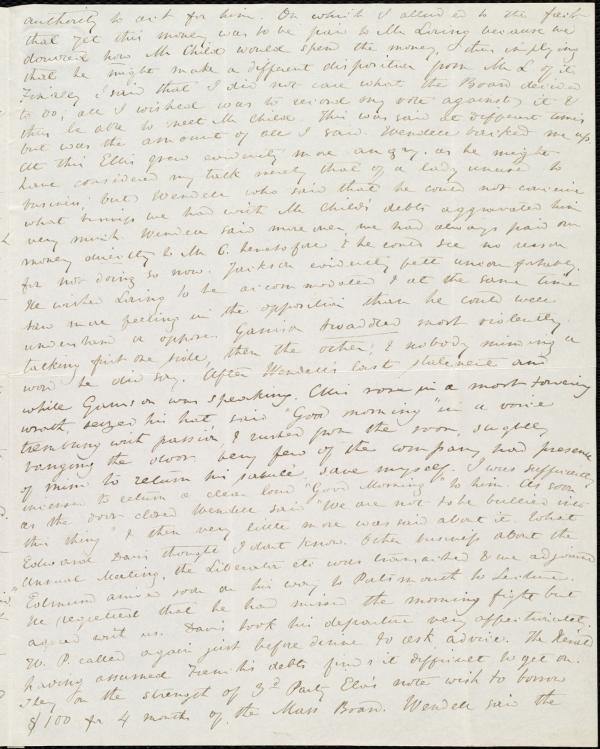 authority to act for him. On which I alluded to the fact
that yet this money was to be paid to Mr Loring because we
doubted how Mr Child would spend the money, thus implying
that he might make a different disposition from Mr L of it
Finally I said that I did not care what the Board decided
to do; all I wished was to record my vote against it &
thus be able to meet Mr Child. This was said at different times
but was the amount of all I said. Wendell backed me up.
At this Ellis grew evidently more angry. as he might
have considered my talk merely that of a lady unused to
business; but Wendell who said that he could not conceive
what business we had with Mr Child's debts aggravated him
very much. Wendell said moreover we had always paid our
money directly to Mr C. heretofore & he could see no reason
for not doing so now. Jackson evidently felt uncomfortably.
He wished Loring to be accommodated & at the same time
saw more feeling in the opposition than he could well
understand or oppose. Garrison twaddled most violently
talking first one side, then the other, & nobody minding a
word he did say. After Wendell's last statement and
while Garrison was speaking. Ellis rose in a most towering
wrath seized his hat, said "Good morning" in a voice
trembling with passion, & rushed from the room, roughly
banging the door. Very few of the company had presence
of mind to return his salute save myself. I was sufficiently
to return a clear loud "Good Morning" to him. As soon
as the door closed Wendell said "We are not to be bullied into
this thing" & then very little more was said about it. What
Edmund Davis thought I don't know. Other business about the
Annual Meeting, the Liberator etc was transacted & we adjourned
Edmund arrived soon on his way to Portsmouth to Lecture.
He regretted that he had missed the morning fight but
agreed with us. Davis took his departure very affectionately.
W. P. called again just before dinner to ask advice. The Herald
having assumed from his debts finds it difficult to get on.
They on the strength of 3d Party Ele's note wish to borrow
$100 for 4 months of the Mass Board. Wendell said the